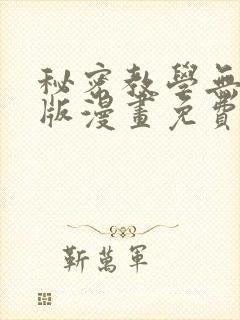 秘密教學無
版漫畫免費
靳萬軍